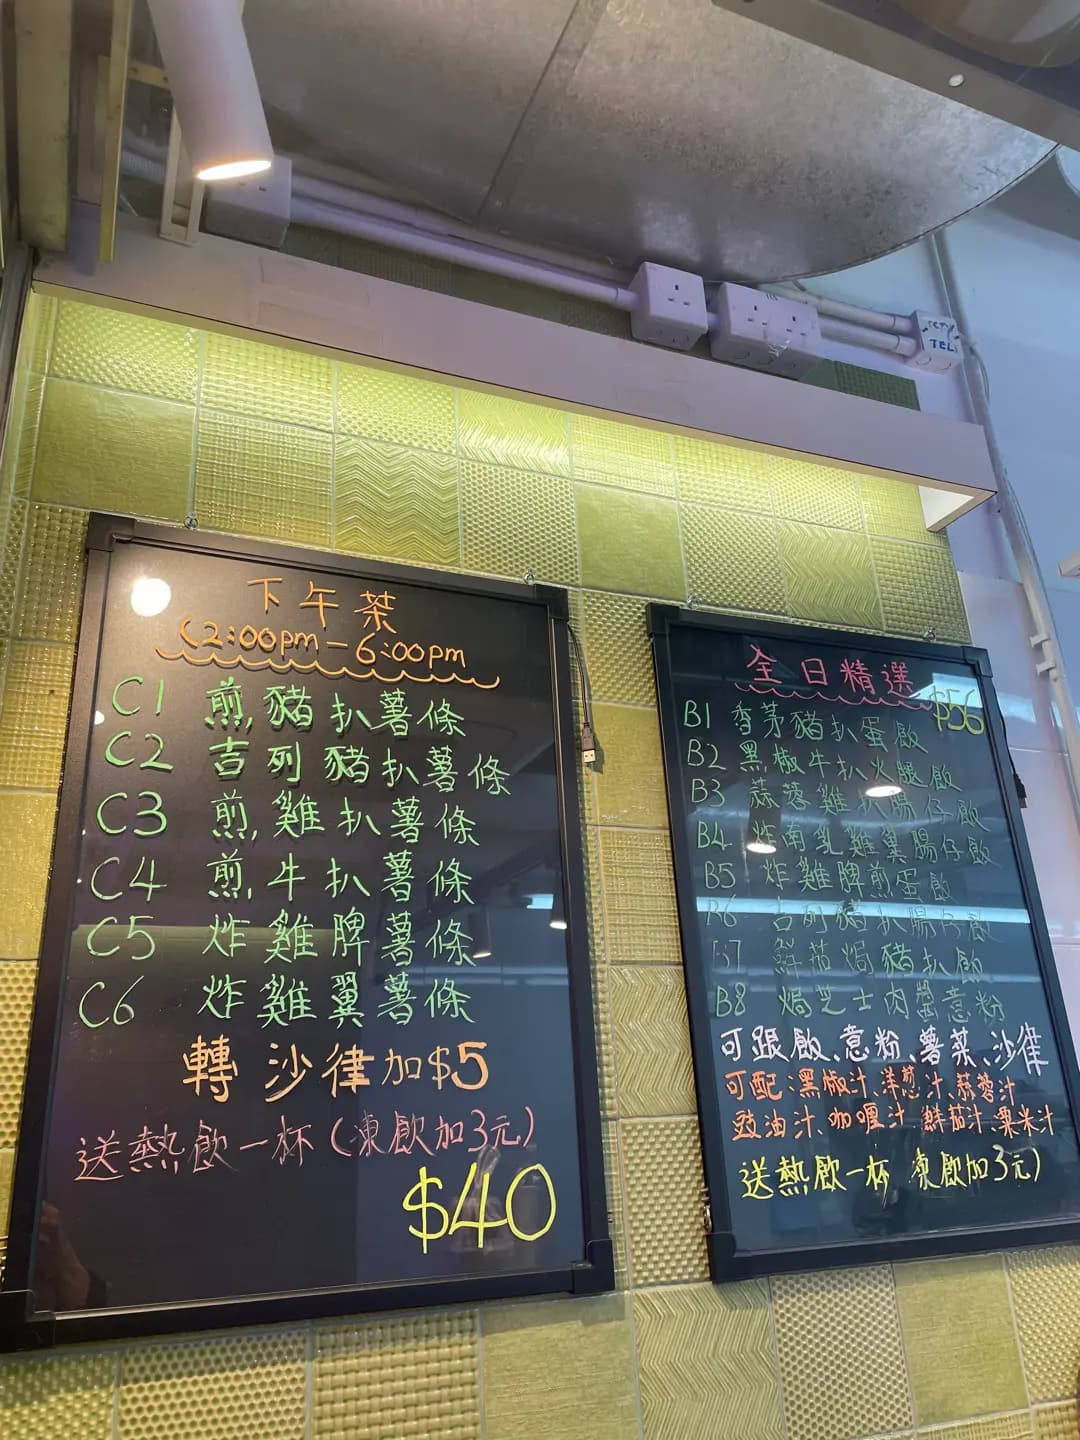 TEL
下午茶
(2:00pm-6:00pm
C1 煎豬扒薯條
C2 吉列豬扒薯條
C3 煎雞扒薯條
C4 煎牛扒薯條
C5 炸雞脾薯條
C6 炸雞翼薯條
轉沙律加$5
送熱飲一杯(凍飲加3元)
$40
全日精選
$56
B1 香茅豬扒蛋飯
B2 黑椒牛扒火腿飯
B3 蒜蓉雞扒腸仔飯
B4 炸南乳雞翼腸仔飯
B5 炸雞脾煎蛋飯
B6 吉列豬扒腸仔飯
B7 鮮茄焗豬扒飯
B8 焗芝士肉醬意粉
可跟飯、意粉、薯菜、沙律
可配:黑椒汁、洋葱汁、蒜蓉汁
豉油汁、咖喱汁、鮮茄汁、粟米汁
送熱飲一杯 凍飲加3元)